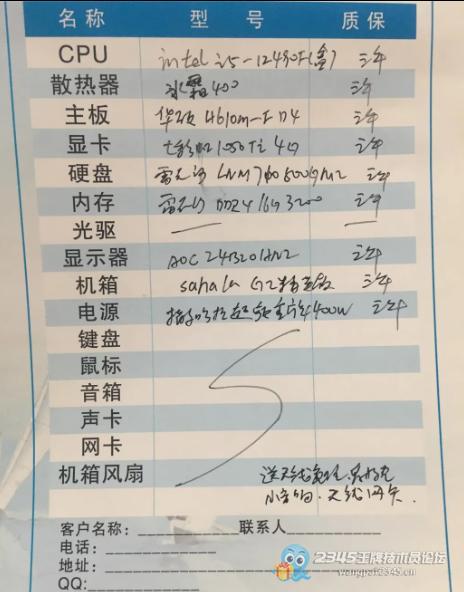 名称 型号 质保
CPU intel i5-12490F(盒) 三年
散热器 冰霜400 三年
主板 华硕 H610m-F D4 三年
显卡 七彩虹1050Ti 4G 三年
硬盘 雷克沙 LNM700 500G M2 三年
内存 雷克沙 DDR4 16G 3200 三年
光驱 — —
显示器 AOC 24B20JH2 三年
机箱 sahala G2 三年
电源 400W 三年
键盘
鼠标
音箱
声卡
网卡
机箱风扇 送
小音响.无线网卡.
客户名称:__________联系人__________
电话:__________
地址:__________
QQ:__________
2345王牌技术员论坛
wangpai2345.cn